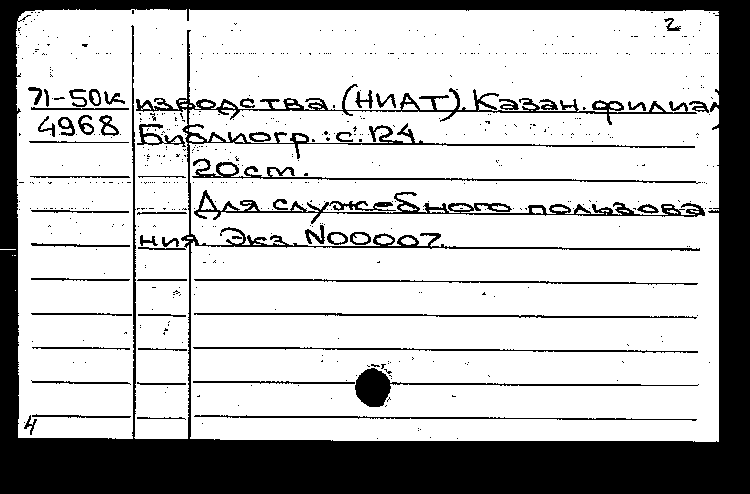 2
71-50к изводства. (НИАТ). Казан. филиал
4968 Библиогр.: с. 124.
20 ст.
Для служебного пользова-
ния. Экз. N00007.
4